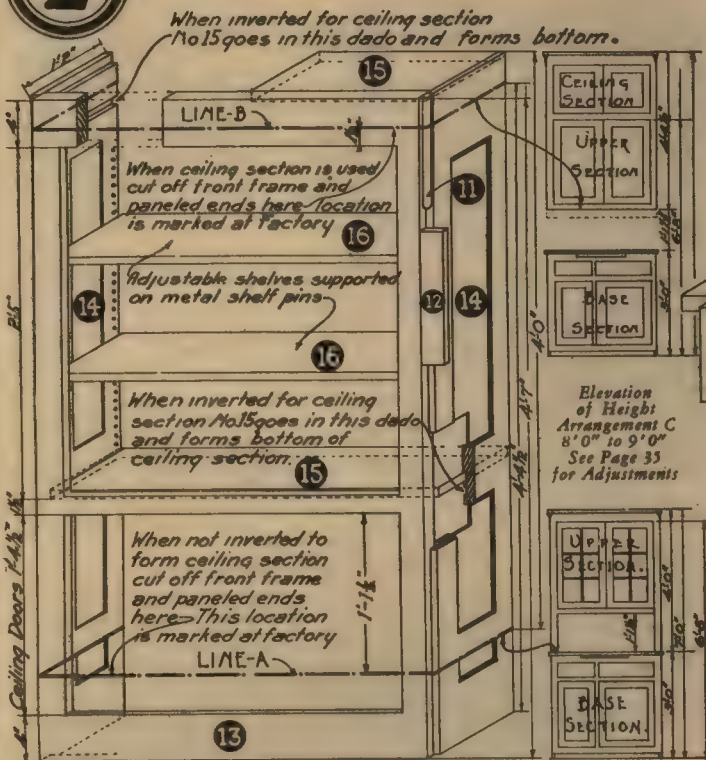 When inverted for ceiling section
No 15 goes in this dado and forms bottom.
1'2"
15
4"
LINE-B
When ceiling section is used
cut off front frame and
paneled ends here - location
is marked at factory
11
16
Adjustable shelves supported
on metal shelf pins
14
12
14
16
2'5"
4'0"
4'7"
4'-4½"
When inverted for ceiling
section No15 goes in this dado
and forms bottom of
ceiling section.
15
When not inverted to
form ceiling section
cut off front frame
and paneled ends
here - This location
is marked at factory
1'-1½"
LINE-A
4" Ceiling Doors 1'-4½" 1½"
13
CEILING
SECTION
UPPER
SECTION
BASE
SECTION
4'4½"
3'0"
Elevation
of Height
Arrangement C
8'0" to 9'0"
See Page 35
for Adjustments
UPPER
SECTION.
BASE
SECTION.
4'0"
7'0"
3'0"